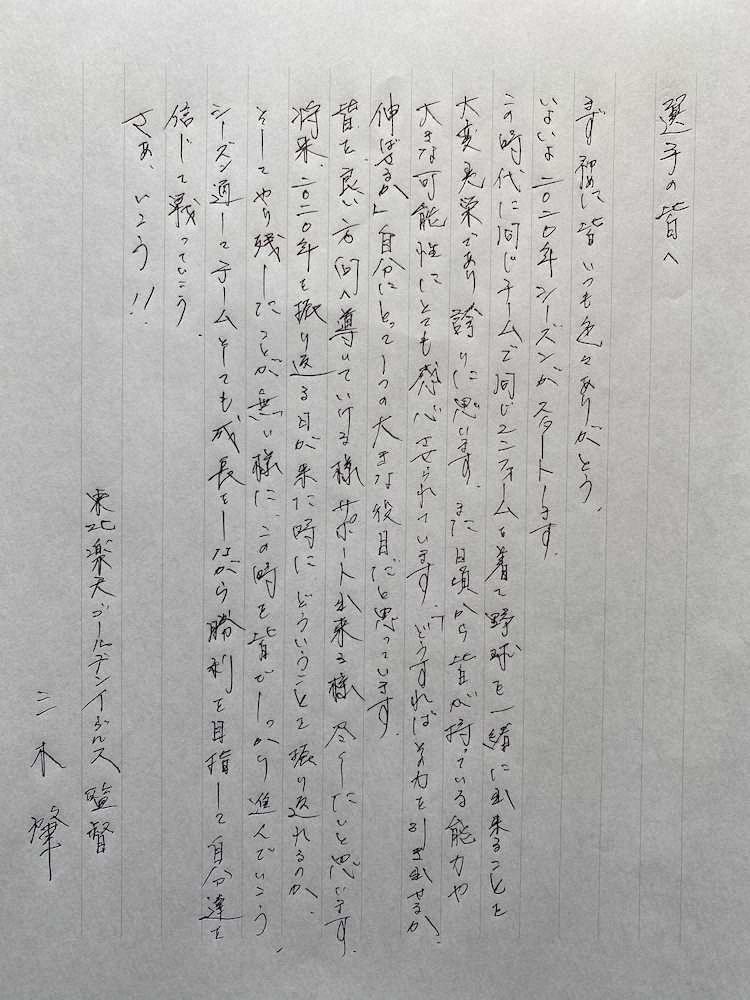 選手の皆へ
まず初めに皆いつも色々ありがとう。
いよいよ二〇二〇年シーズンがスタートします。
この時代に同じチームで同じユニフォームを着て野球を一緒に出来ることを
大変光栄であり誇りに思います。また日頃から皆が持っている能力や
大きな可能性にとても感心させられています。「どうすればその力を引き出せるか、
伸ばせるか」自分にとって1つの大きな役目だと思っています。
皆を良い方向へ導いていける様サポート出来る様尽くしたいと思います。
将来、二〇二〇年を振り返る日が来た時に、どういうことを振り返れるのか、
そしてやり残したことが無い様に、この時を皆でしっかり進んでいこう、
シーズン通してチームとても成長をしながら勝利を目指して自分達を
信じて戦っていこう。
さあ、いこう!!
東北楽天ゴールデンイーグルス 監督
三木 肇